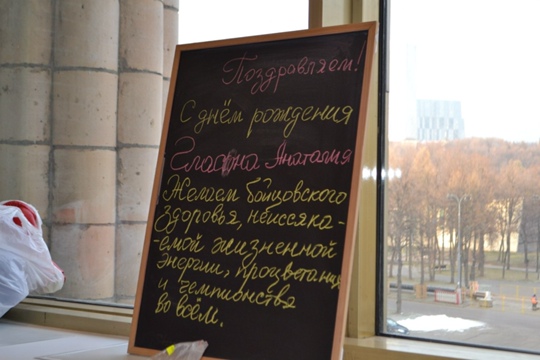 Поздравляем!
С днём рождения
Анатолия
Желаем бойцовского
здоровья, неиссяка-
емой жизненной
энергии, процветания
и чемпионства
во всём.